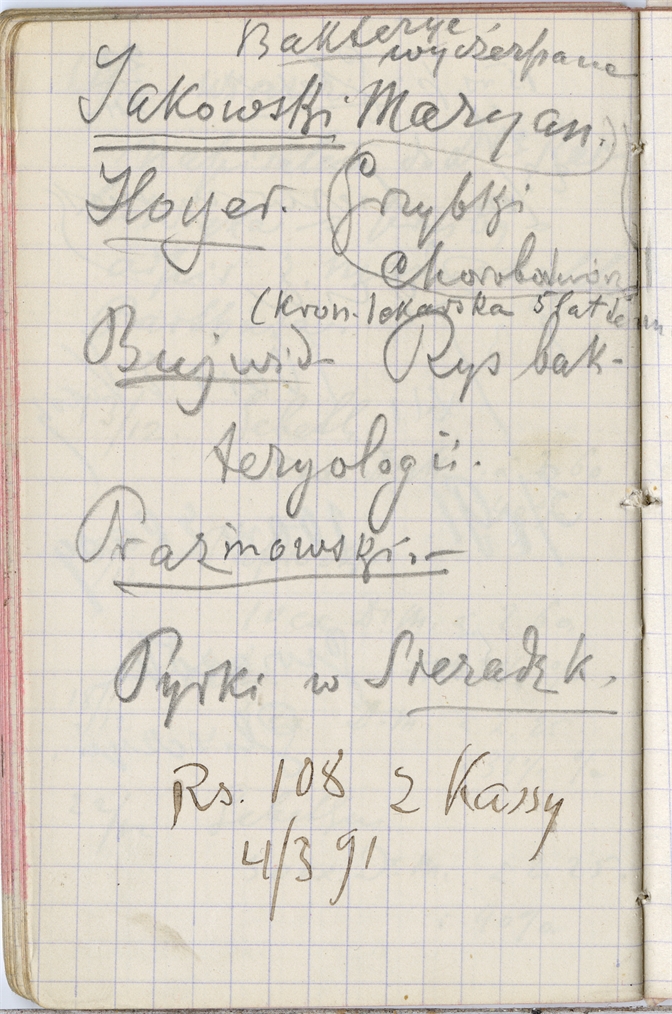 Bakterye
wyczerpane
Jakowski Maryan.
Hoyer. Grzybki
Chorobotwórcz
(Kron. lekarska 5 lat temu
Bujwid Rys bak-
teryologii.
Prazmowski.-
Pyrki w Sieradzk.
Rs. 108 z Kassy
4/3 91